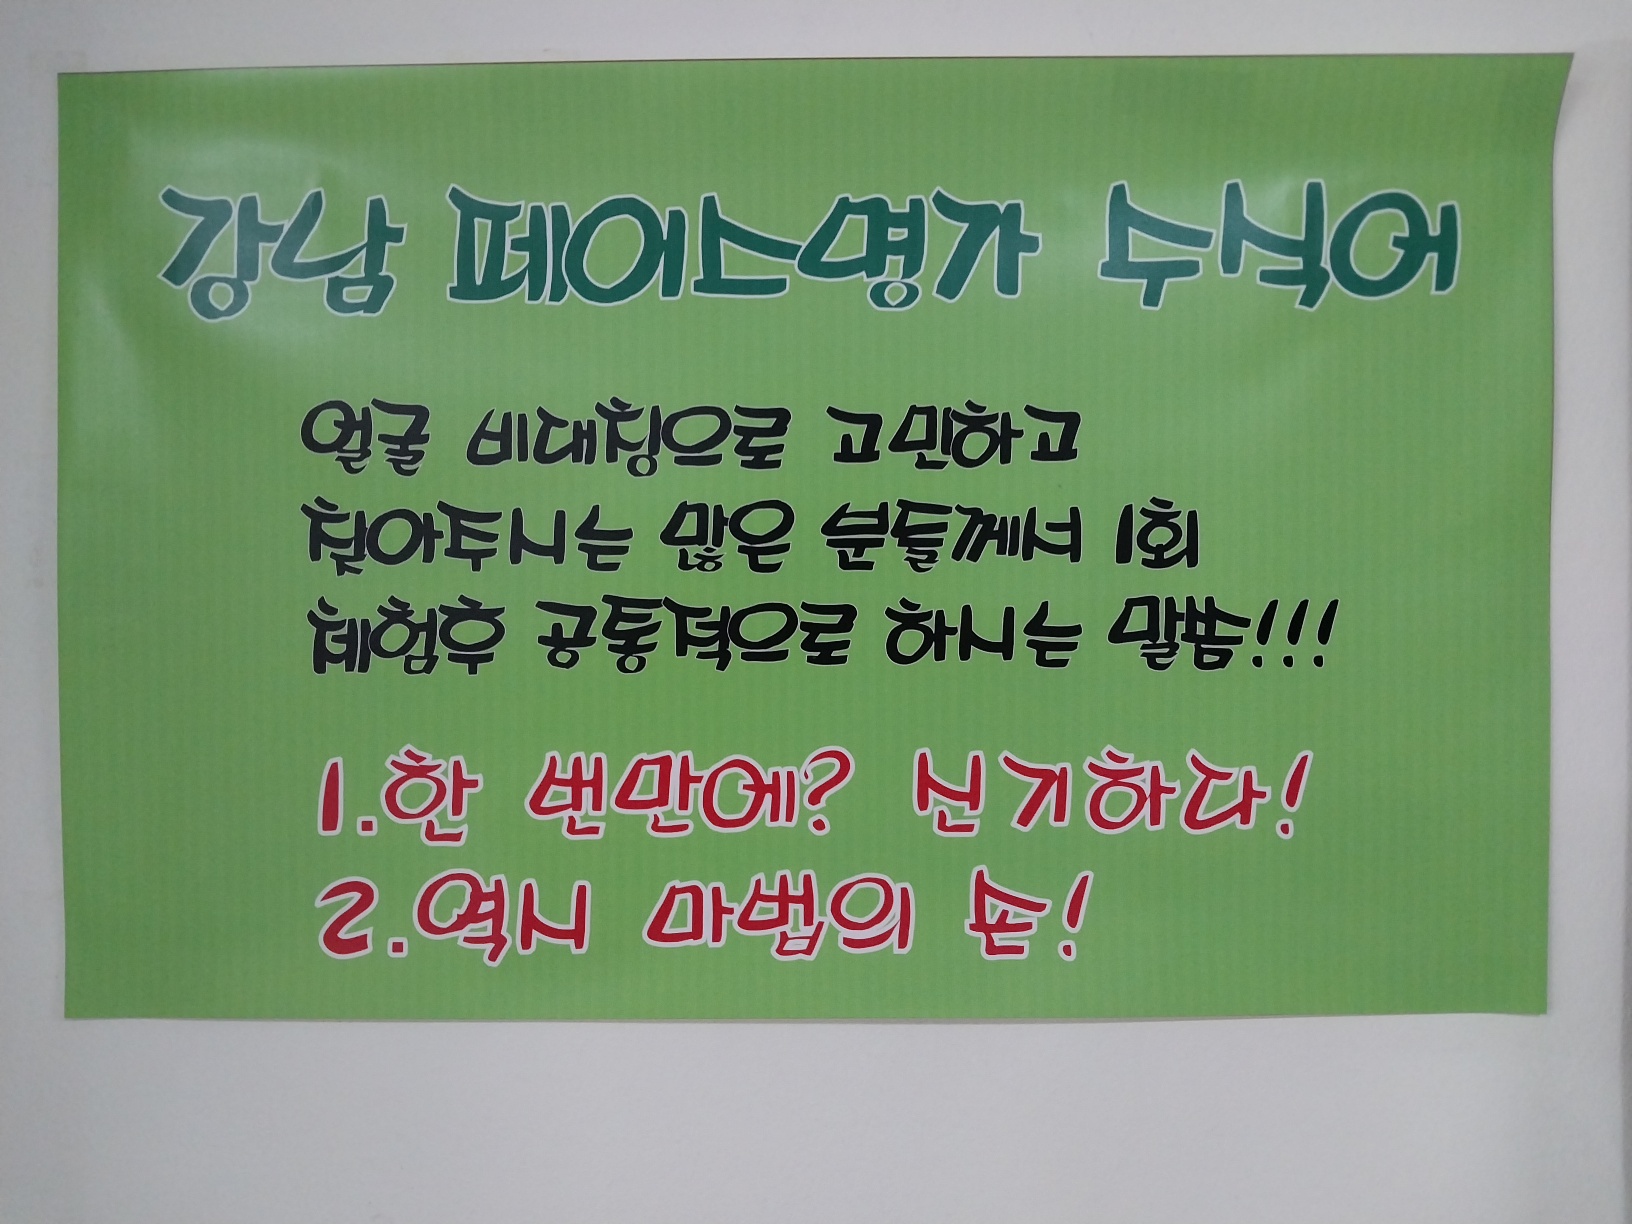 강남 페이스명가
얼굴 비대칭으로 고민하고
찾아주시는 많은 분들께서 1회
체험후 공통적으로 하시는 말씀!!!
1.한 번만에? 신기하다!
2.역시 마법의 손!